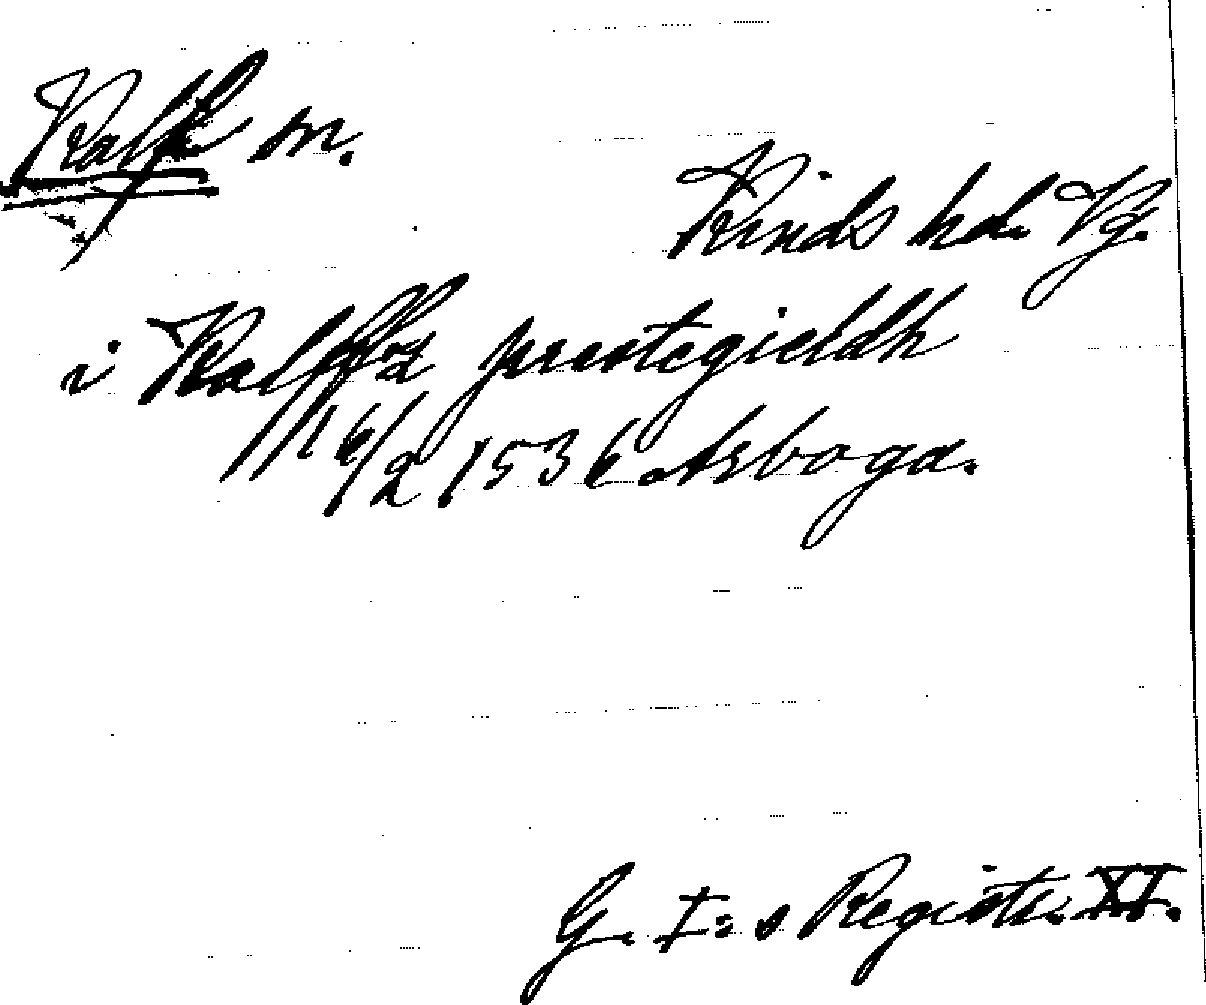 Kalf m.
Kinds hd. Vg.
i Kalffza prestegieldh
16/2 1536 Arboga.
G. I:s Registr. XI.